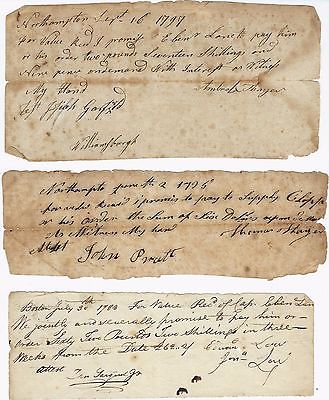 Northampton Sept 16 1797
For Value Recd I promise Eben Lorett pay him
or his order two pounds Seventeen Shillings and
Nine pence on demand with Interest as Witness
My Hand
Test
Williamsburgh
Northampton 2 1795
for value recd i promis to pay to Supply Clapp
or his order the Sum of Six Dolers upon demand
As Witness My han
Attest
John Prout
Boston July 30th 1784 For Value Recd of Capt Eben Lan
We jointly and severally promise to pay him or
Order Sixty Two Pounds Two Shillings in three
Weeks from the Date £62.2/
Attest